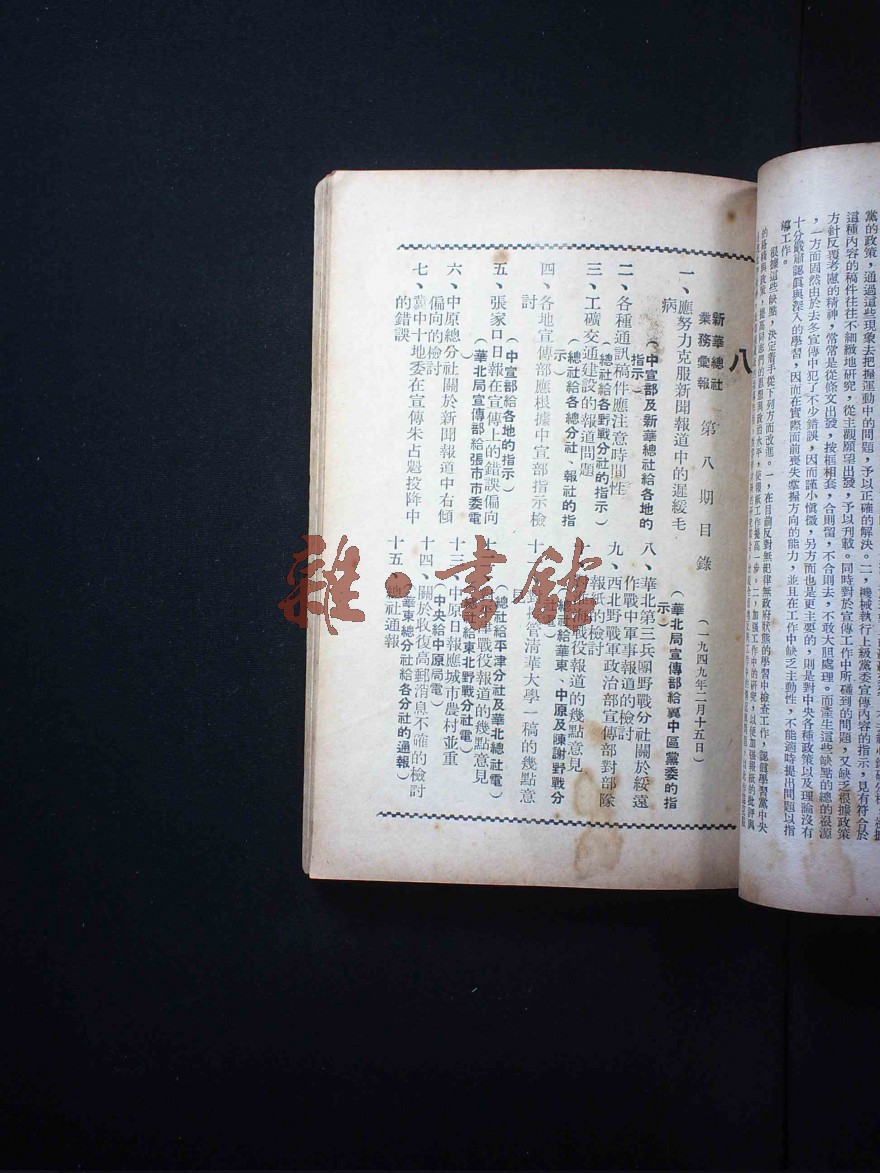 黨的政策，通過這些現象去把握運動中的問題，予以正確的解決。二，機械執行上級黨委宣傳內容的指示，見有符合於
這種內容的稿件往往不細緻地研究，從主觀願望出發，予以刊載。同時對於宣傳工作中所碰到的問題，又缺乏根據政策
方針反覆考慮的精神，常常是從條文出發，按框相套，合則留，不合則去，不敢大胆處理。而產生這些缺點的總的根源
，一方面固然由於去冬宣傳中犯了不少錯誤，因而謹小慎微，另方面也是更主要的，則是對中央各種政策以及理論沒有
十分嚴肅認真與深入的學習，因而在實際面前喪失掌握方向的能力，並且在工作中缺乏主動性，不能適時提出問題以指
導工作。
根據這些缺點，決定着手從下列方面改進。一，在目前反對無紀律無政府狀態的學習中檢查工作，認真學習黨中央
的路綫與政策，提高同志們的思想與政治水平，使報紙工作提高一步。二，加强工作中的研究，以便加强報紙的批評與
八
新華總社
業務彙報 第八期目錄
（一九四九年二月十五日）
一、應努力克服新聞報道中的遲緩毛
病
（中宣部及新華總社給各地的
指示）
二、各種通訊稿件應注意時間性
（總社給各野戰分社的指示）
三、工礦交通建設的報道問題
（總社給各總分社、報社的指
示）
四、各地宣傳部應根據中宣部指示檢
討
（中宣部給各地的指示）
五、張家口日報在宣傳上的錯誤偏向
（華北局宣傳部給張市市委電
六、中原總分社關於新聞報道中右傾
偏向的檢討
七、冀中十地委在宣傳朱占魁投降中
的錯誤
（華北局宣傳部給冀中區黨委的指
示）
八、華北第三兵團野戰分社關於綏遠
作戰中軍事報道的檢討
九、西北野戰軍政治部宣傳部對部隊
報紙的檢討
十、淮海戰役報道的幾點意見
總社給華東、中原及陳謝野戰分
社電）
十一、管清華大學一稿的幾點意
見
（總社給平津分社及華北總社電）
十二、津戰役報道的幾點意見
總社給東北野戰分社電）
十三、中原日報應城市農村並重
（中央給中原局電）
十四、關於收復高郵消息不確的檢討
（華東總分社給各分社的通報）
十五、總社通報
雜·書館